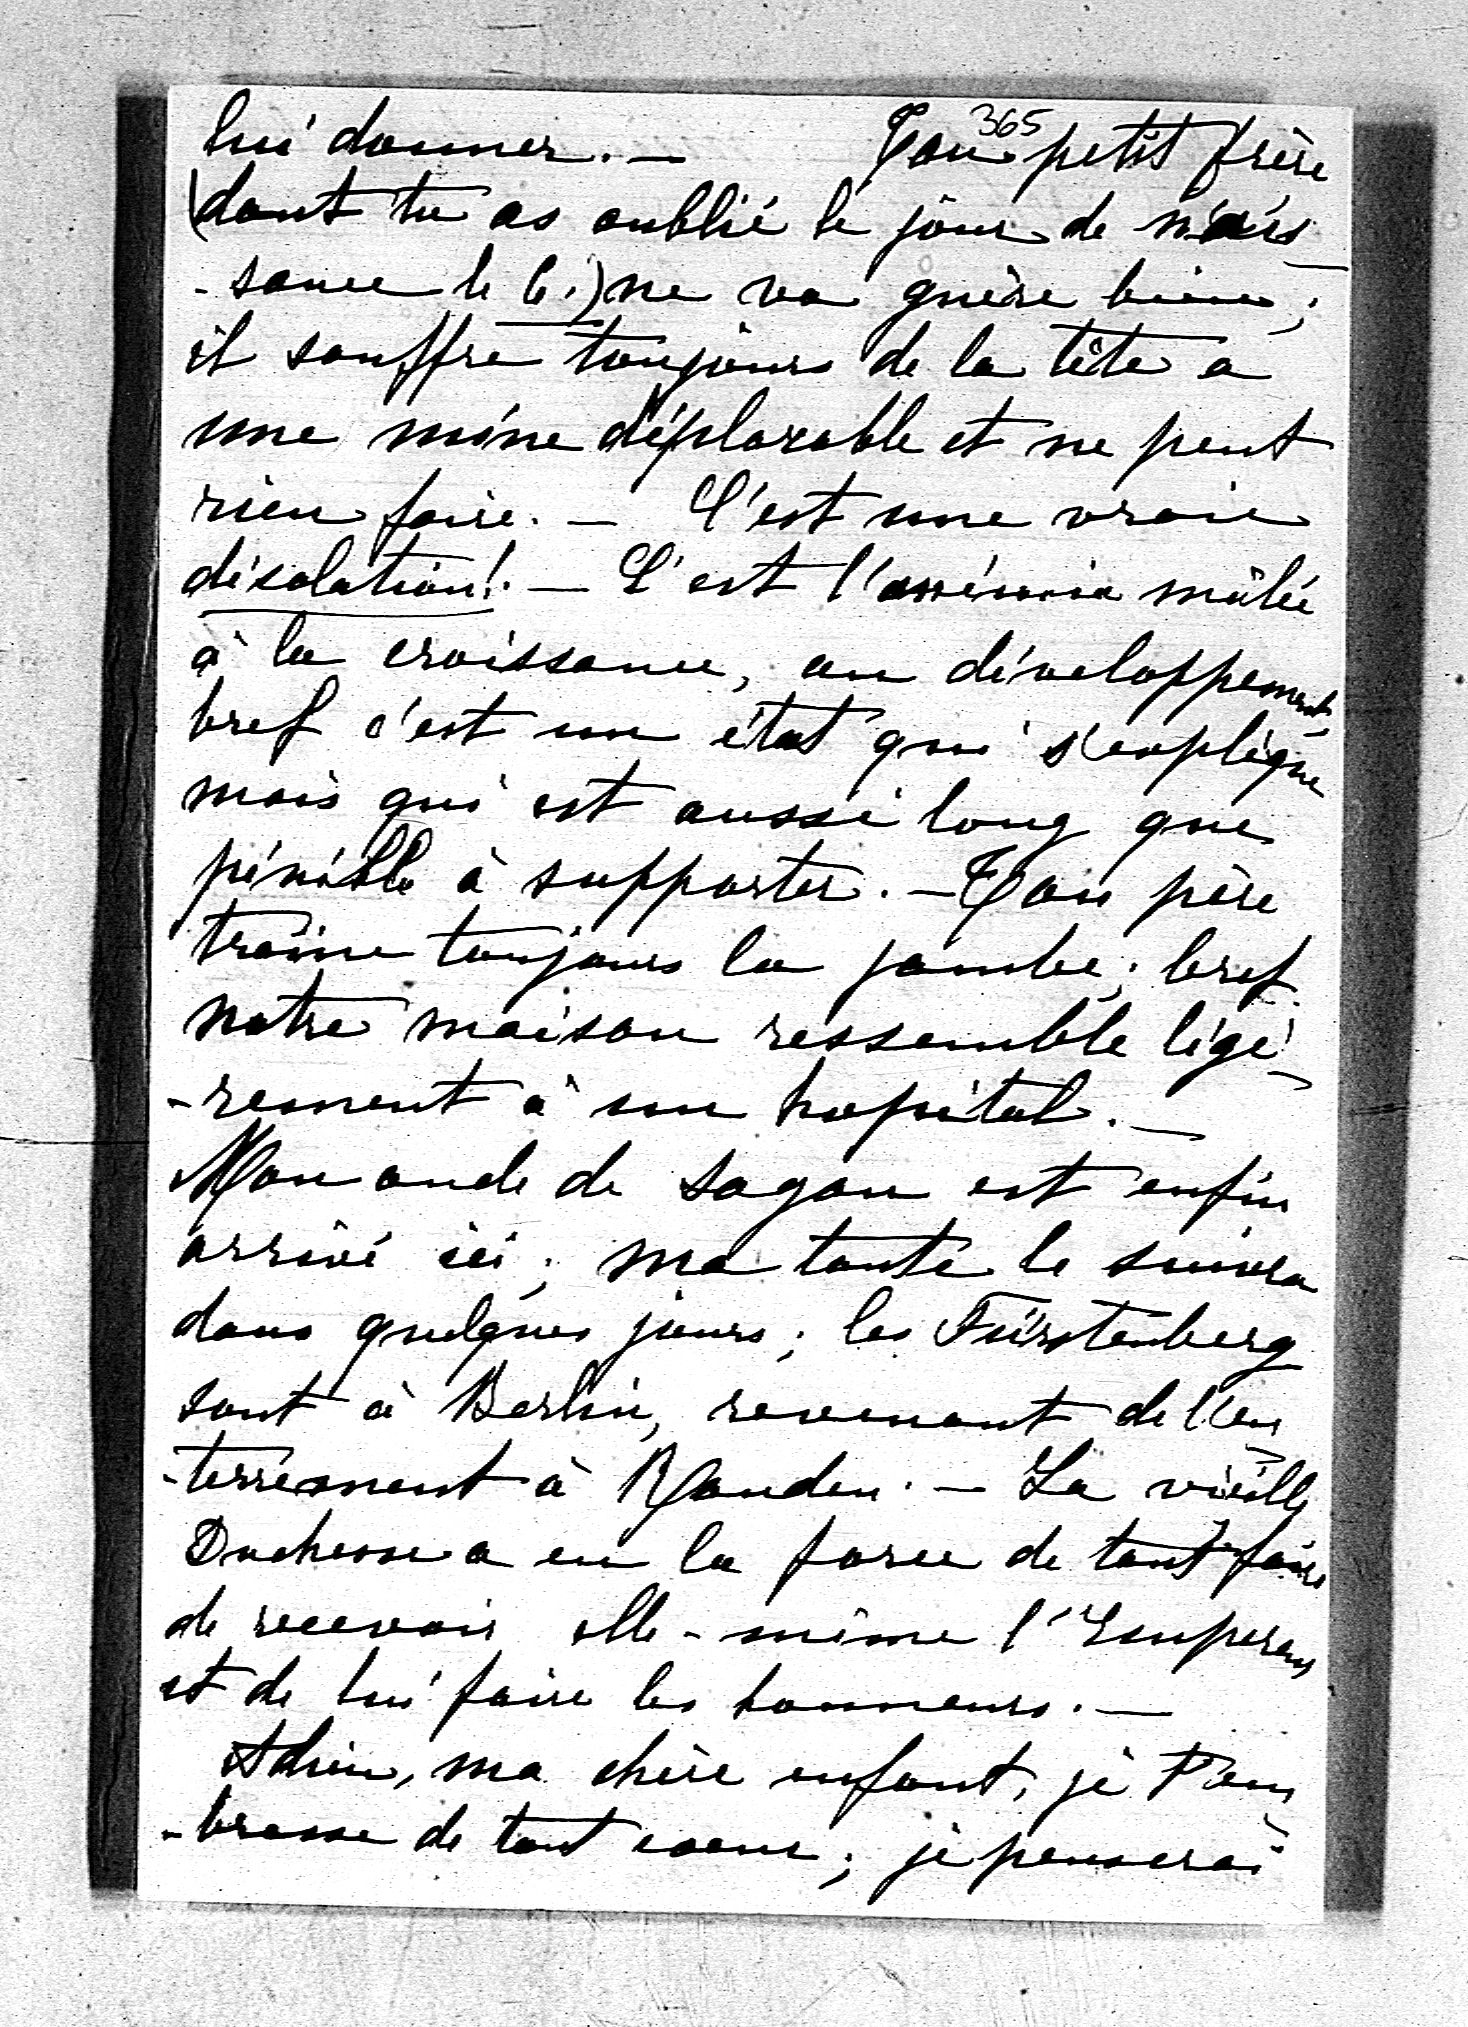 365
lui donner. — Ton petit frère
(dont tu as oublié le jour de nais
-sance le 6.) ne va guère bien;
il souffre toujours de la tête a
une mine déplorable et ne peut
rien faire. — C'est une vraie
désolation! — C'est l'anémie mêlée
à la croissance, au développement
bref c'est un état qui s'explique
mais qui est aussi long que
pénible à supporter. — Ton père
traine toujours la jambe; bref
notre maison ressemble légè-
-rement à un hopital. —
Mon oncle de Sagan est enfin
arrivé ici; ma tante le suivra
dans quelques jours; les Fürstenberg
sont à Berlin, revenant de l'en
-terrement à Rauden. — La vieille
Duchesse a eu la force de tout faire
de recevoir elle-même l'Empereur
et de lui faire les honneurs. —
Adieu, ma chère enfant, je t'em
-brasse de tout coeur; je penserai